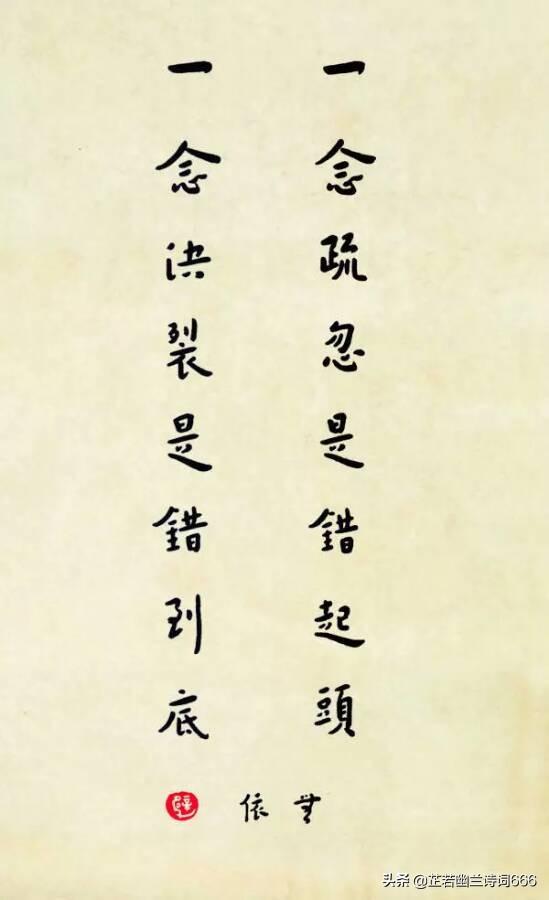 一念疏忽是錯起頭
一念決裂是錯到底
無依
头条 @芷若幽兰诗词666